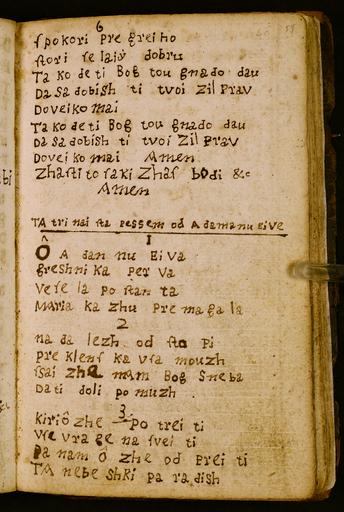 6
ſpokori pre greiho
ſtori ſe laiÿ dobru
Ta ko de ti Bog tou gnado dau
Da Sa dobish ti tvoi Zil prav
Doveiko mai
Ta ko de ti Bog tou gnado dau
Da sa dobish ti tvoi Zil prav
Dovei ko mai Amen
Zhaſti to ſaki Zhaſ bodi &c
Amen
TA tri nai ſta peſſem od Adama nu Eive
1
Ô A dan nu Ei va
greshni ka per va
ve ſe la po ſtan ta
Maria ka zhu pre ma ga la
2
na da lezh od ſta pi
pre klenſ ka vſa mouzh
iſai zhe mam Bog S neba
Da ti doli po muzh
3
kiriô zhe po trei ti
vſe vra ge na ſvei ti
Da nam ô zhe od prei ti
TA nebe shki pa ra dish